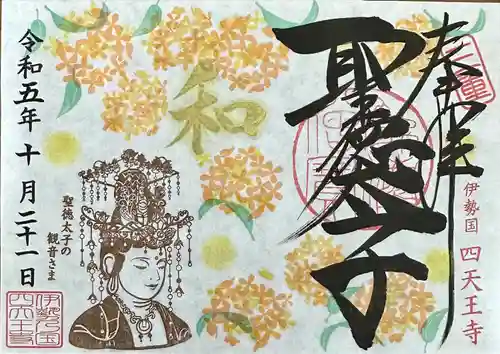 奉拝
聖徳太子
伊勢国 四天王寺
和
聖徳太子の
観音さま
令和五年十月二十一日
三重